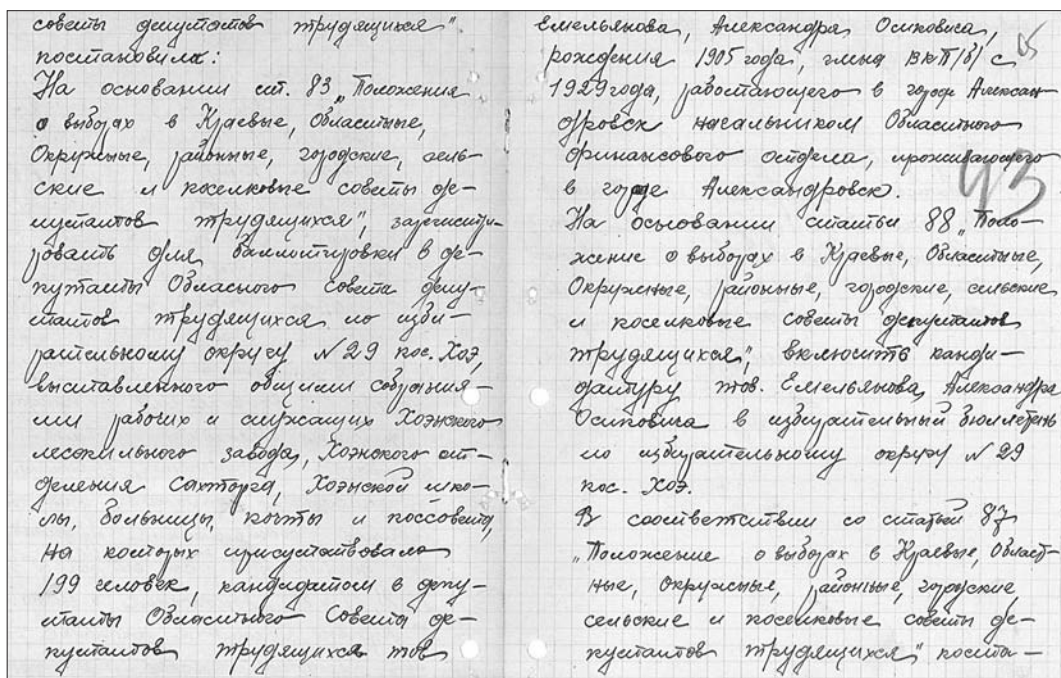 советы депутатов трудящихся"
постановила:
На основании ст. 83 „Положения
о выборах в Краевые, Областные,
Окружные, районные, городские, сель-
ские и поселковые советы де-
путатов трудящихся", зарегистри-
ровать для баллотировки в де-
путаты Обласного Совета депу-
татов трудящихся по изби-
рательному округу № 29 пос. Хоэ,
выставленного общими собрания-
ми рабочих и служащих Хоэнского
лесопильного завода, Хоэнского от-
деления Сахторга, Хоэнской шко-
лы, больницы, почты и поссовета,
на которых присутствовало
199 человек, кандидатом в депу-
таты Областного Совета де-
путатов трудящихся тов
Емельянова, Александра Осиповича,
рождения 1905 года, члена ВКП/б/ с
1929 года, работающего в городе Алексан-
дровск начальником Областного
финансового отдела, проживающего
в городе Александровск.
43
На основании статьи 88 „Поло-
жение о выборах в Краевые, Областные,
Окружные, районные, городские, сельские
и поселковые советы депутатов
трудящихся", включить канди-
датуру тов. Емельянова, Александра
Осиповича в избирательный бюллетень
по избирательному округу № 29
пос. Хоэ.
В соответствии со статьей 87
„Положение о выборах в Краевые, Област-
ные, окружные, районные, городские,
сельские и поселковые советы де-
путатов трудящихся" поста-